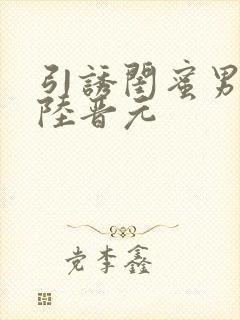 引誘閨蜜男
陸晋元
党李鑫